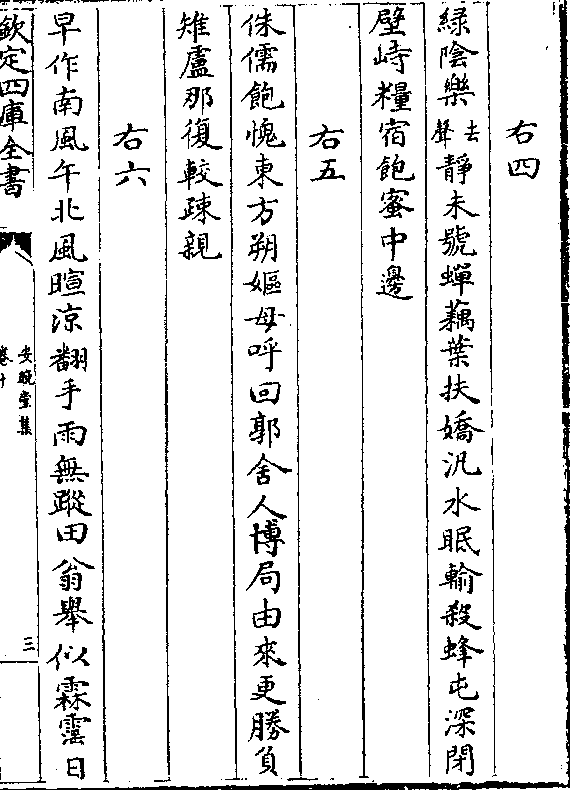 右四
綠陰樂去聲靜未號蟬藕葉扶嬌汎水眠輸殺蜂屯深閉
壁峙糧宿飽蜜中邊
右五
侏儒飽愧東方朔嫗母呼回郭舍人博局由來更勝負
雉盧那復較疎親
右六
早作南風午北風暄涼翻手雨無蹤田翁舉似霖霪日
欽定四庫全書
安晚堂集
卷十
三